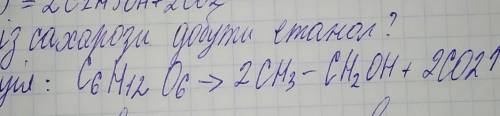 = 2C2H5OH + 2CO2
із сахарози добути етанол?
ція: C6H12O6 → 2CH3 - CH2OH + 2CO2↑